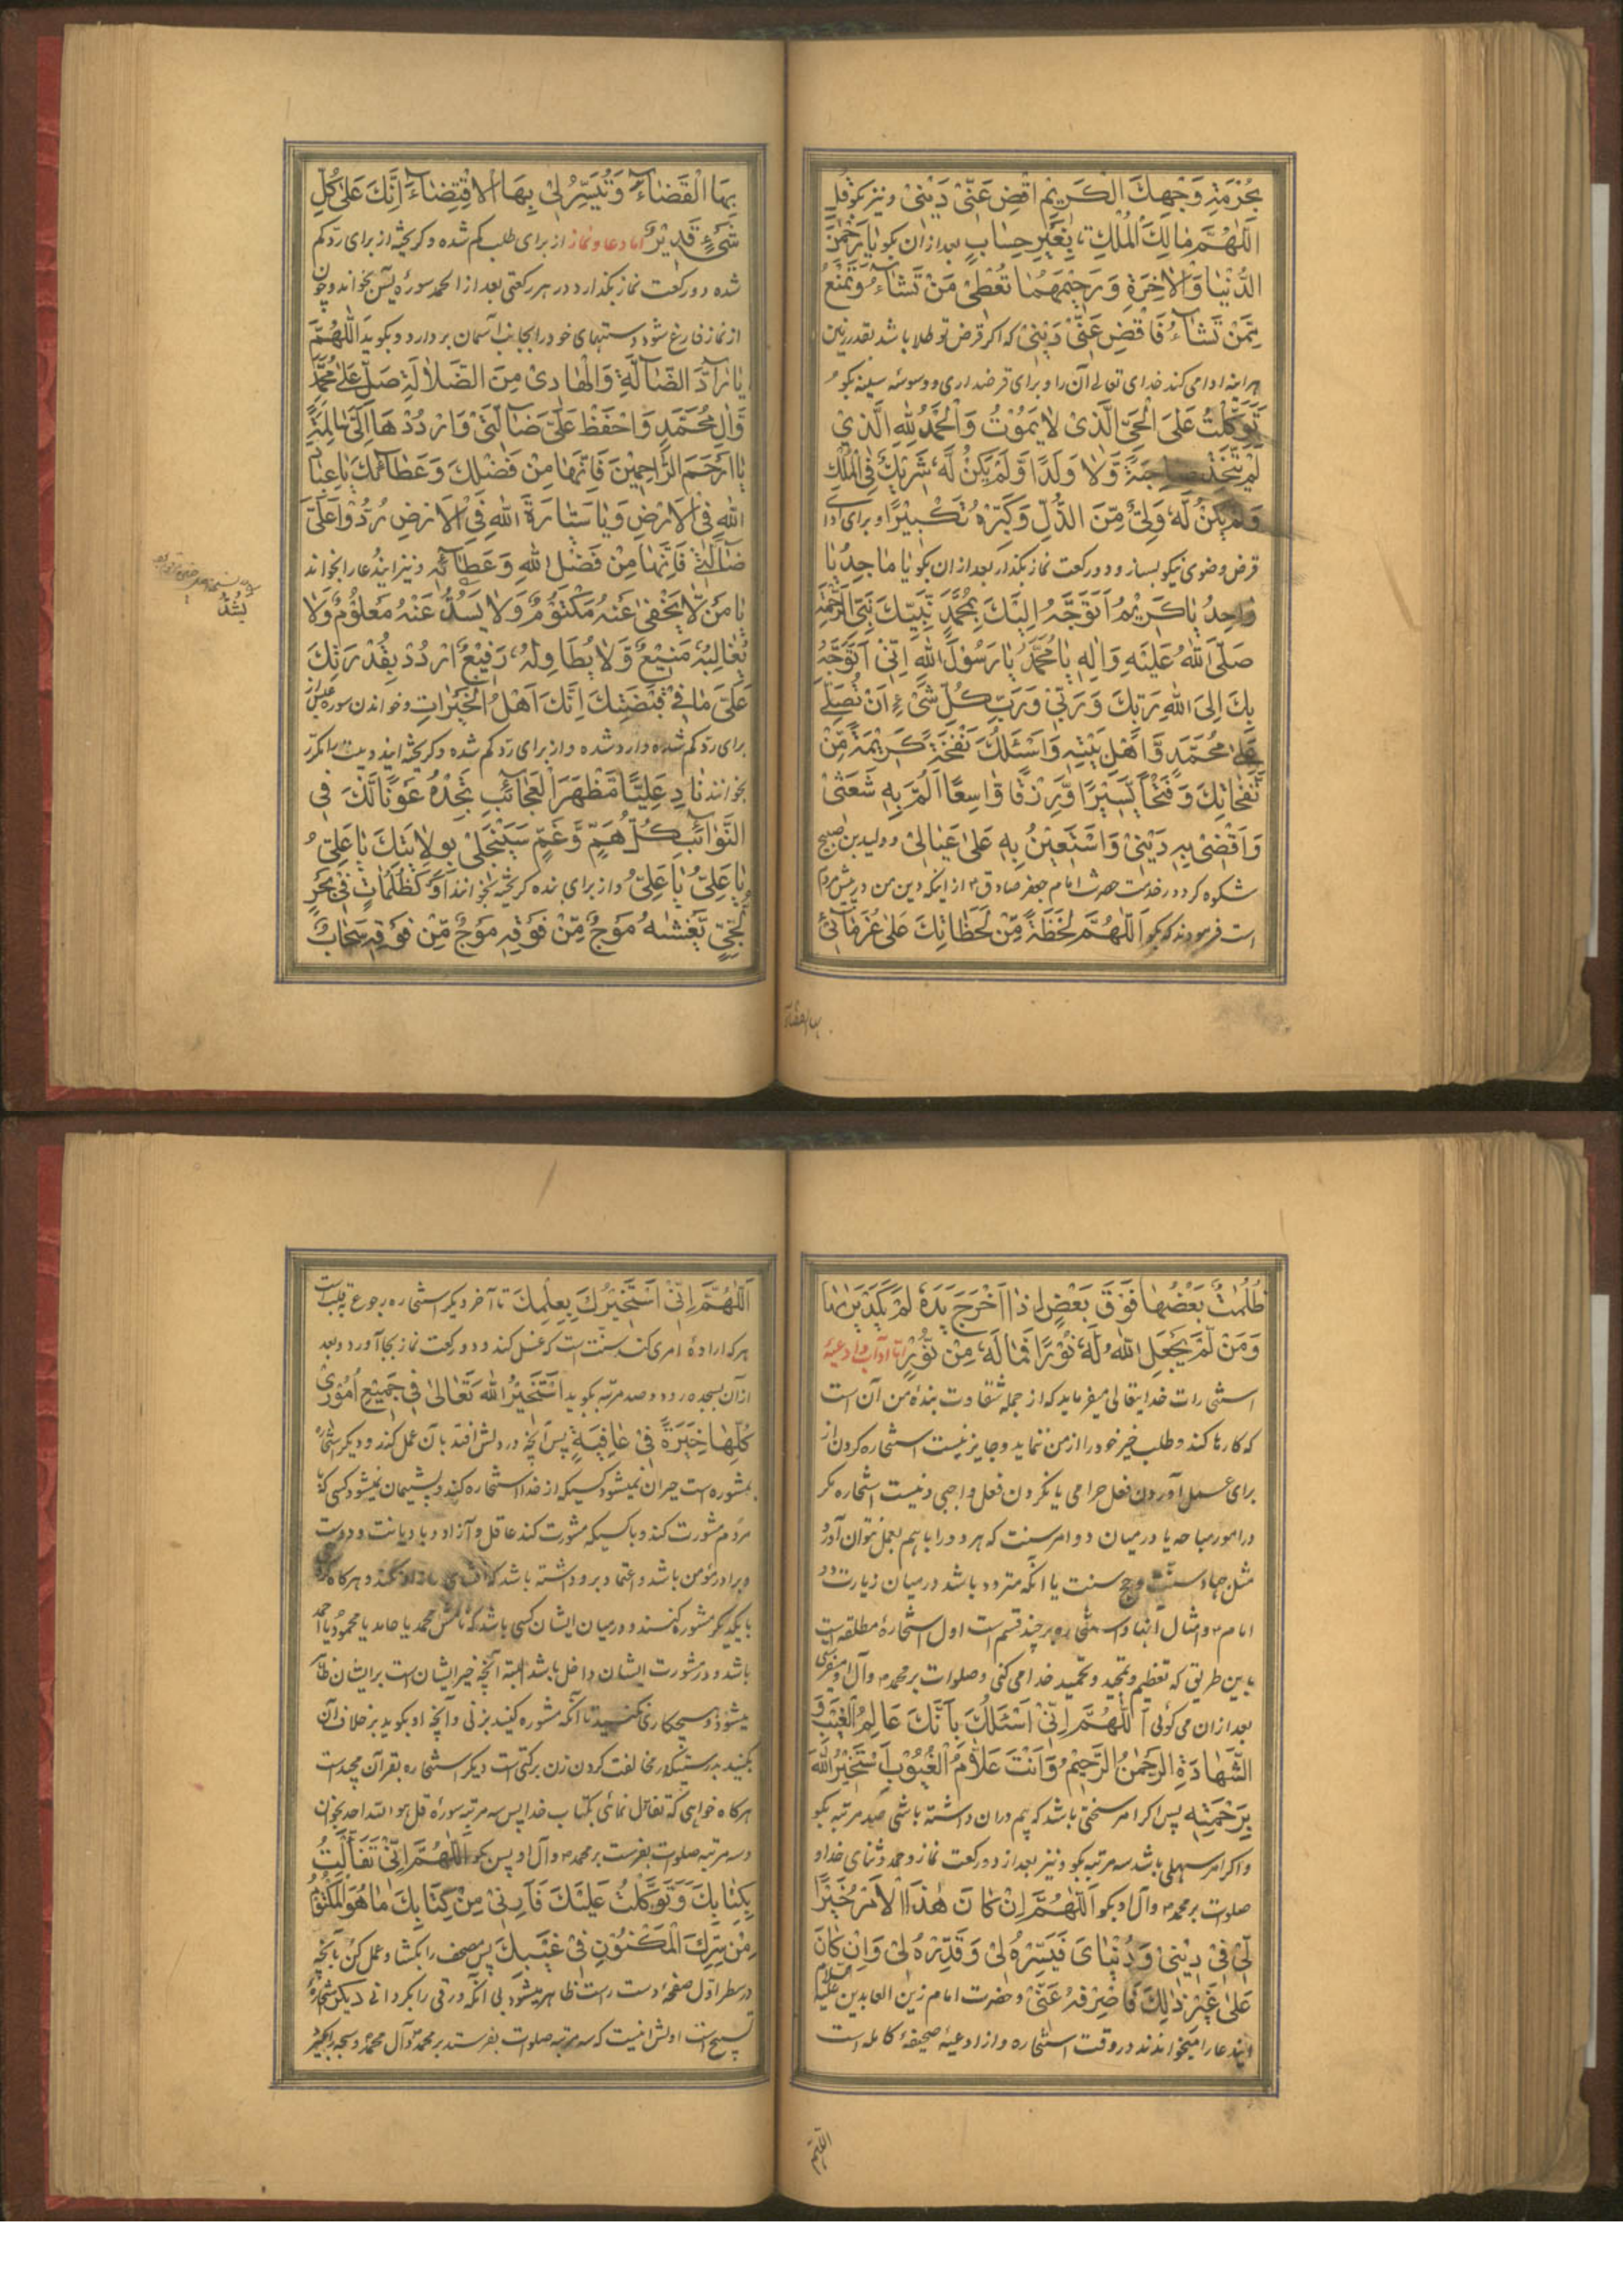 بِحُرْمَةِ وَجْهِكَ الْكَرِيْمِ اقْضِ عَنّیْ دَيْنیْ ونیز بکو قُلِ
اَللّٰهُمَّ مٰالِكَ الْمُلْكِ بِغَيْرِ حِسٰابٍ بعد ازان بکو يٰا رَحْمٰنَ
الدُّنْيٰا وَالْاٰخِرَةِ وَرَحِيْمَهُمٰا تُعْطِیْ مَنْ تَشٰآءُ وَتَمْنَعُ
مِمَّنْ تَشٰآءُ فَاقْضِ عَنّیْ دَيْنیْ که اکر قرض تو طلا باشد بقدر زمین
هر اینه ادا می کند خدای تعالی آن را و برای قرضداری و وسوسه سینه بکو
تَوَكَّلْتُ عَلَی الْحَیِّ الَّذیْ لٰا يَمُوْتُ وَالْحَمْدُ لِلّٰهِ الَّذيْ
لَمْ يَتَّخِذْ صٰاحِبَةً وَّلٰا وَلَدًا وَّلَمْ يَكُنْ لَّهُ شَرِيْكٌ فِی الْمُلْكِ
وَلَمْ يَكُنْ لَّهُ وَلِیٌّ مِّنَ الذُّلِّ وَكَبِّرْهُ تَكْبِيْرًا و برای ادای
قرض وضوی نیکو بساز و دو رکعت نماز بکذار بعد ازان بکو يٰا مٰاجِدُ يٰا
وٰاحِدُ يٰا كَرِيْمُ اَتَوَجَّهُ اِلَيْكَ بِمُحَمَّدٍ نَّبِيِّكَ نَبِیِّ الرَّحْمَةِ
صَلَّی اللّٰهُ عَلَيْهِ وَاٰلِهِ يٰا مُحَمَّدُ يٰا رَسُوْلَ اللّٰهِ اِنّیْ اَتَوَجَّهُ
بِكَ اِلَی اللّٰهِ رَبِّكَ وَرَبّیْ وَرَبِّ كُلِّ شَیْءٍ اَنْ تُصَلِّیَ
عَلٰی مُحَمَّدٍ وَّاَهْلِ بَيْتِهِ وَاَسْئَلُكَ نَفْحَةً كَرِيْمَةً مِّنْ
نَّفَحٰاتِكَ وَفَتْحًا يَّسِيْرًا وَّرِزْقًا وّٰاسِعًا اَلُمُّ بِهِ شَعَثیْ
وَاَقْضیْ بِهِ دَيْنیْ وَاَسْتَعِيْنُ بِهِ عَلٰی عِيٰالیْ و ولید بن صبیح
شکوه کرد در خدمت حضرت امام جعفر صادق ع از اینکه دین من در پیش مردم
است فرمودند که بکو اَللّٰهُمَّ لَحْظَةً مِّنْ لَحَظٰاتِكَ عَلٰی غُرَمٰآئیْ
بها القضآء
بِهَا الْقَضٰآءَ وَتُيَسِّرُ لیْ بِهَا الْاِقْتِضٰآءَ اِنَّكَ عَلٰی كُلِّ
شَیْءٍ قَدِيْرٌ اما دعا و نماز از برای طلب کم شده و کریخته از برای ردّ کم
شده دو رکعت نماز بکذارد در هر رکعتی بعد از الحمد سورۀ یٰسٓ بخواند و چون
از نماز فارغ شود دستهای خود را بجانب آسمان بردارد و بکوید اَللّٰهُمَّ
يٰا رٰآدَّ الضّٰآلَّةِ وَالْهٰادِیْ مِنَ الضَّلٰالَةِ صَلِّ عَلٰی مُحَمَّدٍ
وَّاٰلِ مُحَمَّدٍ وَّاحْفَظْ عَلَیَّ ضٰآلَّتیْ وَارْدُدْهٰا اِلَیَّ سٰالِمَةً
يٰا اَرْحَمَ الرّٰاحِمِيْنَ فَاِنَّهٰا مِنْ فَضْلِكَ وَعَطٰآئِكَ يٰا عِبٰادَ
اللّٰهِ فِی الْاَرْضِ وَيٰا سَيّٰارَةَ اللّٰهِ فِی الْاَرْضِ رُدُّوْا عَلَیَّ
ضٰآلَّتیْ فَاِنَّهٰا مِنْ فَضْلِ اللّٰهِ وَعَطٰآئِهِ و نیز ایندعا را بخواند
يٰا مَنْ لّٰا يَخْفٰی عَنْهُ مَكْتُوْمٌ وَّلٰا يَسُدُّ عَنْهُ مَعْلُوْمٌ وَّلٰا
يُغٰالِبُهُ مَنِيْعٌ وَّلٰا يُطٰاوِلُهُ رَفِيْعٌ اُرْدُدْ بِقُدْرَتِكَ
عَلَیَّ مٰا فیْ قَبْضَتِكَ اِنَّكَ اَهْلُ الْخَيْرٰاتِ و خواندن سوره عبس از
برای ردّ کم شده وارد شده و از برای ردّ کم شده و کریخته این دو بیت را مکرّر
بخوانند نٰادِ عَلِيًّا مَّظْهَرَ الْعَجٰآئِبِ تَجِدْهُ عَوْنًا لَّكَ فِی
النَّوٰآئِبِ كُلُّ هَمٍّ وَّغَمٍّ سَيَنْجَلیْ بِوِلٰايَتِكَ يٰا عَلِیُّ
يٰا عَلِیُّ يٰا عَلِیُّ و از برای بنده کریخته بخوانند اَوْ كَظُلُمٰاتٍ فیْ بَحْرٍ
لُّجِّیٍّ يَّغْشٰهُ مَوْجٌ مِّنْ فَوْقِهِ مَوْجٌ مِّنْ فَوْقِهِ سَحٰابٌ
يَشُذُّ
ظُلُمٰتٌ بَعْضُهٰا فَوْقَ بَعْضٍ اِذٰا اَخْرَجَ يَدَهُ لَمْ يَكَدْ يَرٰىهٰا
وَمَنْ لَّمْ يَجْعَلِ اللّٰهُ لَهُ نُوْرًا فَمٰا لَهُ مِنْ نُّوْرٍ امّا آداب و ادعیۀ
استخارات خدایتعالی میفرماید که از جمله شقاوت بندۀ من آن است
که کارها کند و طلب خیر خود را از من ننماید و جایز نیست استخاره کردن از
برای عمل آوردن فعل حرامی یا نکردن فعل واجبی و نیست استخاره مکر
در امور مباحه یا در میان دو امر سنت که هر دو را با هم بعمل نتوان آورد
مثل جهاد سنت و حج سنت یا انکه متردد باشد در میان زیارت دو
امام ع و امثال اینها و استخاره بر چند قسم است اول استخارۀ مطلقه است
باین طریق که تعظیم و تمجید و تحمید خدا می کنی و صلوات بر محمد ص و آل او میفرستی
بعد ازان می کوئی اَللّٰهُمَّ اِنّیْ اَسْئَلُكَ بِاَنَّكَ عٰالِمُ الْغَيْبِ وَ
الشَّهٰادَةِ الرَّحْمٰنُ الرَّحِيْمُ وَاَنْتَ عَلّٰامُ الْغُيُوْبِ اَسْتَخِيْرُ اللّٰهَ
بِرَحْمَتِهِ پس اکر امر سختی باشد که بیم دران داشته باشی صد مرتبه بکو
و اکر امر سهلی باشد سه مرتبه بکو و نیز بعد از دو رکعت نماز و حمد و ثنای خدا و
صلوات بر محمد ص و آل او بکو اَللّٰهُمَّ اِنْ كٰانَ هٰذَا الْاَمْرُ خَيْرًا
لّیْ فیْ دِيْنیْ وَدُنْيٰایَ فَيَسِّرْهُ لیْ وَقَدِّرْهُ لیْ وَاِنْ كٰانَ
عَلٰی غَيْرِ ذٰلِكَ فَاصْرِفْهُ عَنّیْ و حضرت امام زین العابدین علیه السلام
ایندعا را میخواندند در وقت استخاره و از ادعیۀ صحیفۀ کامله است
اللهم
اَللّٰهُمَّ اِنّیْ اَسْتَخِيْرُكَ بِعِلْمِكَ تا آخر دیکر استخاره رجوع بقلب است
هر که ارادۀ امری کند سنّت است که غسل کند و دو رکعت نماز بجا آورد و بعد
ازان بسجده رود و صد مرتبه بکوید اَسْتَخِيْرُ اللّٰهَ تَعٰالٰی فیْ جَمِيْعِ اُمُوْریْ
كُلِّهٰا خِيَرَةً فیْ عٰافِيَةٍ پس آنچه در دلش افتد بآن عمل کند و دیکر استخاره
بمشوره است حیران نمیشود کسیکه از خدا استخاره کند و پشیمان نمیشود کسی که با
مردم مشورت کند و با کسیکه مشورت کند عاقل و آزاد و با دیانت و دوست
و برادر مؤمن باشد و اعتماد برو داشته باشد که افشای راز او نکند و هرکاه
با یکدیکر مشوره کنند و در میان ایشان کسی باشد که نامش محمد یا حامد یا محمود یا احمد
باشد و در مشورت ایشان داخل باشد البته آنچه خیر ایشان است برایشان ظاهر
میشود و هیچکاری نکنید تا آنکه مشوره کنید بزنی و آنچه او بکوید بر خلاف آن
بکنید بدرستیکه در مخالفت کردن زن برکتی است دیکر استخاره بقرآن مجید است
هرکاه خواهی که تفأل نمائی بکتاب خدا پس سه مرتبه سورۀ قل هو الله احد بخوان
و سه مرتبه صلوات بفرست بر محمد ص و آل او پس بکو اَللّٰهُمَّ اِنّیْ تَفَأَّلْتُ
بِكِتٰابِكَ وَتَوَكَّلْتُ عَلَيْكَ فَاَرِنیْ مِنْ كِتٰابِكَ مٰا هُوَ الْمَكْتُوْمُ
مِنْ سِرِّكَ الْمَكْنُوْنِ فیْ غَيْبِكَ پس مصحف را بکشا و عمل کن بآنچه
در سطر اوّل صفحۀ دست راست ظاهر میشود بی آنکه ورقی را بکردانے دیکر استخارۀ
تسبیح است اولش اینست که سه مرتبه صلوات بفرستد بر محمد و آل محمد و سبحه را بکیرد